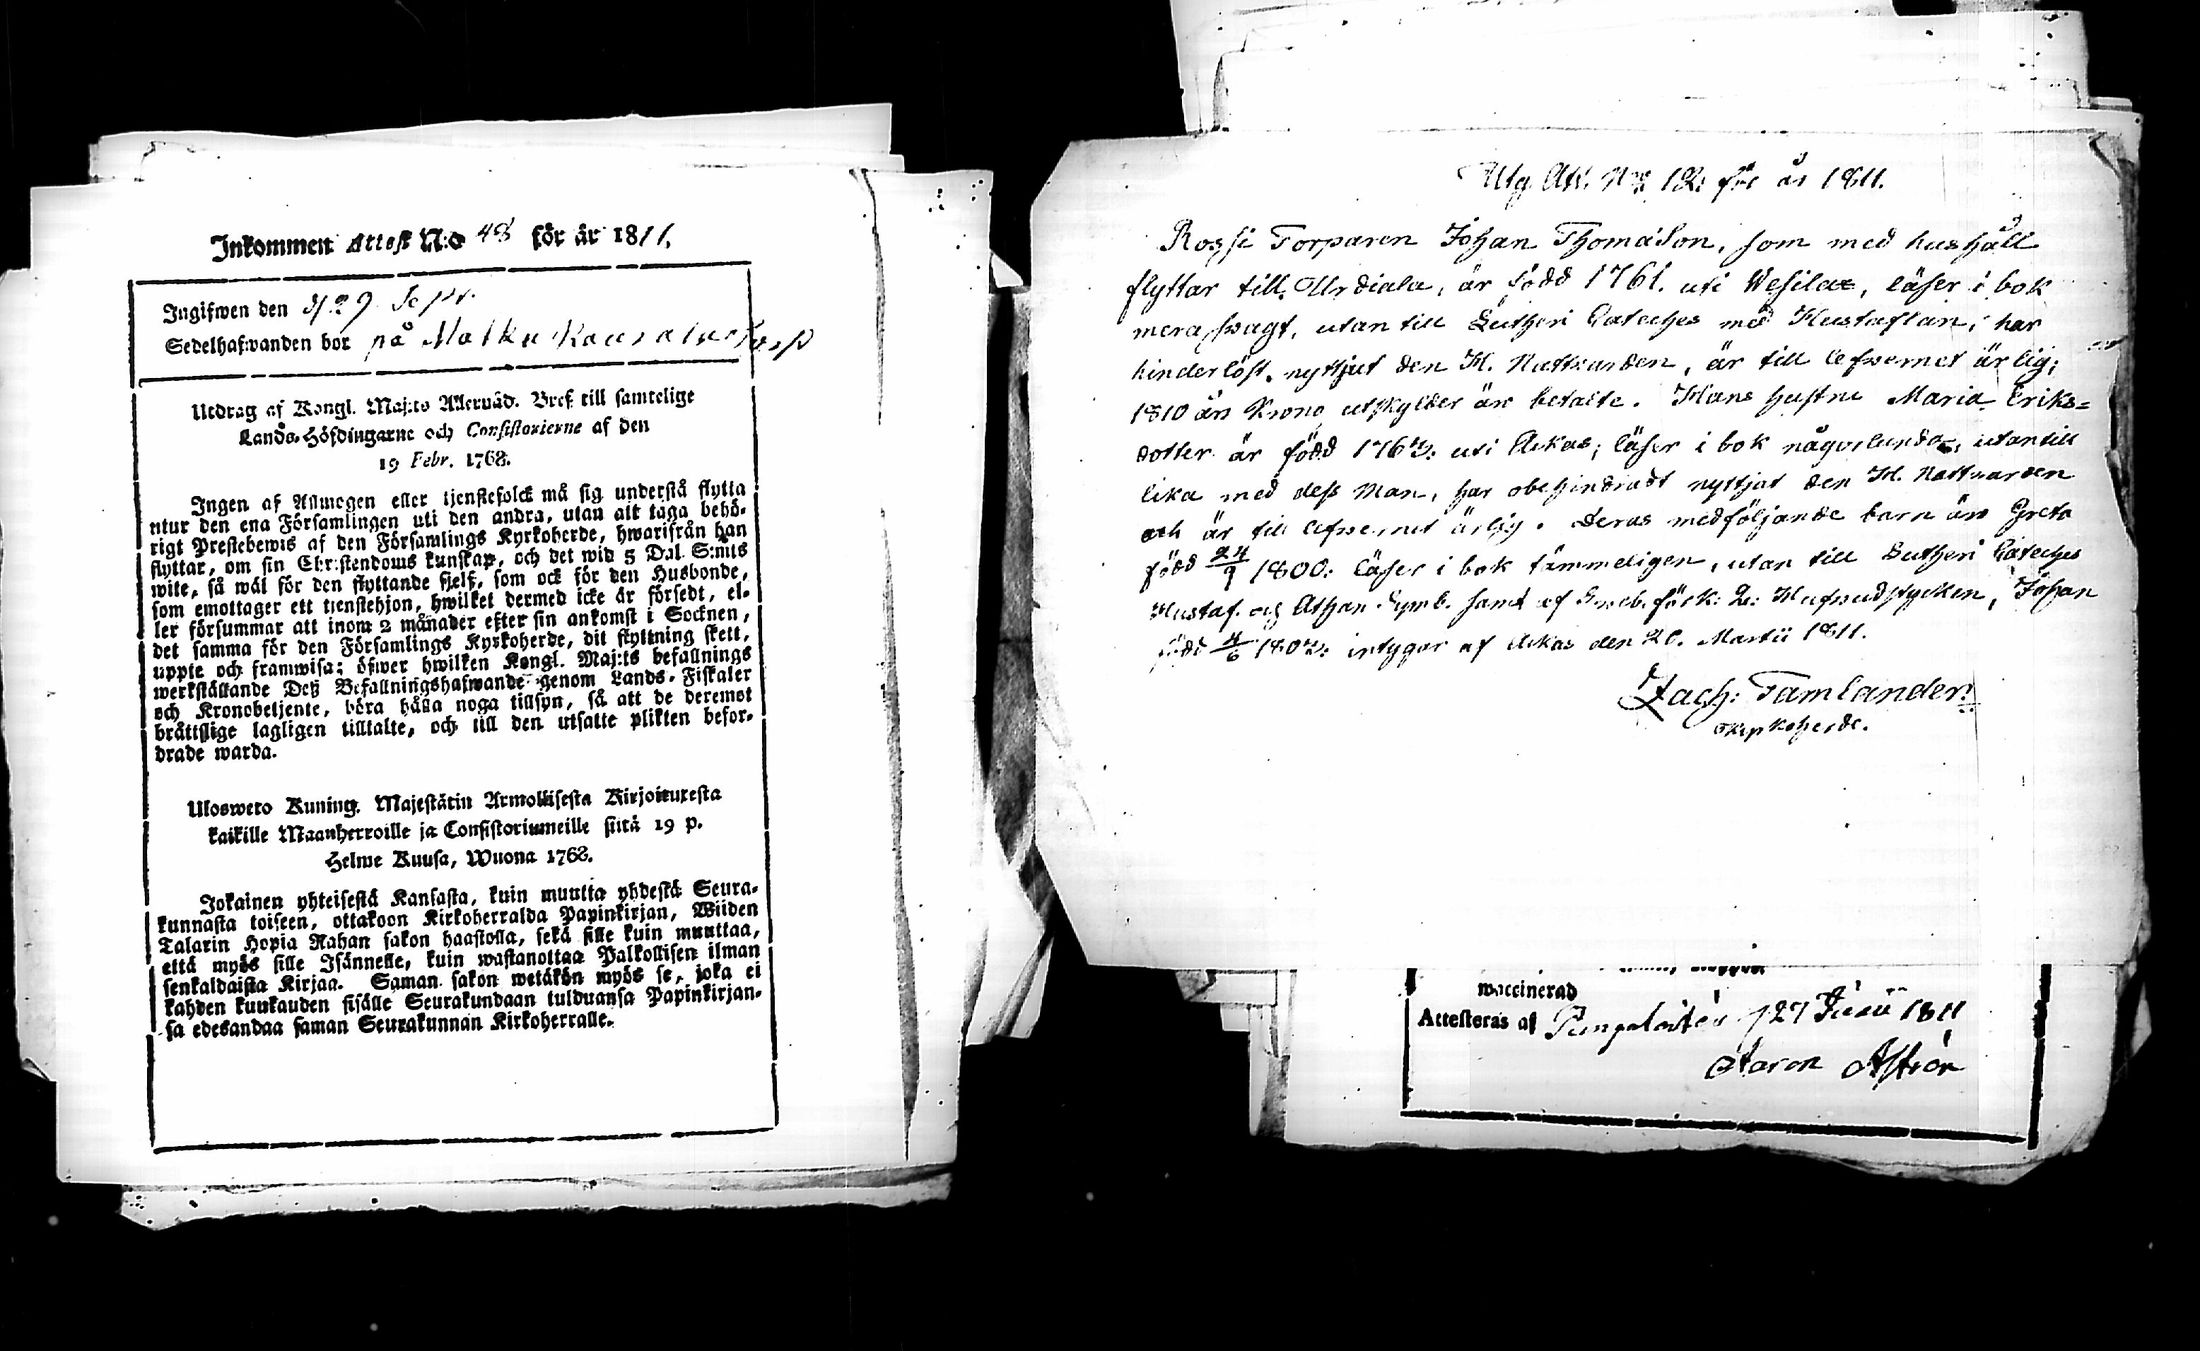 Inkommen Attest N:o 48 för år 1811.
Ingifwen den 9 Sept.
Sedelhafwanden bor på
Utdrag af Kongl. Maj:ts Allernåd. Bref till samtelige
Lands-Höfdingarne och Consistorierne af den
19 Febr. 1768.
Ingen af Allmogen eller tjenstefolck må sig understå flytta
utur den ena Församlingen uti den andra, utan att taga behö-
rigt Prestebewis af den Församlings Kyrkoherde, hwarifrån han
flyttar, om sin Christendoms kunskap, och det wid 5 Dal. S:mts
wite, så wäl för den flyttande sjelf, som ock för den Husbonde,
som emottager ett tienstehjon, hwilket dermed icke är försedt, el-
ler försummar att inom 2 månader efter sin ankomst i Socknen,
det samma för den Församlings Kyrkoherde, dit flyttning skett,
uppte och framwisa; öfwer hwilken Kongl. Maj:ts befallnings
werkställande Deß Befallningshafwande genom Lands-Fiskaler
och Kronobetjente, böra hålla noga tillsyn, så att de deremot
bråttslige lagligen tilltalte, och till den utsatte plikten befor-
drade warda.
Ulosweto Kuning. Majestätin Armollisesta Kirjoituxesta
kaikille Maanherroille ja Consistoriumeille siitä 19 p.
Helme Kuusa, Wuona 1768.
Jokainen yhteisestä Kansasta, kuin muutta yhdestä Seura-
kunnasta toiseen, ottakoon Kirkoherralda Papinkirjan, Wiiden
Talarin Hopia Rahan sakon haastolla, sekä sille kuin muuttaa,
että myös sille Isännelle, kuin wastanottaa Palkollisen ilman
senkaldaista Kirjaa. Saman sakon wetäkön myös se, joka ei
kahden kuukauden sisälle Seurakundaan tulduansa Papinkirjan-
sa edesandaa saman Seurakunnan Kirkoherralle.
Utg. Att. No 12. för år 1811.
Torparen Johan Thomasson, som med hushåll
flyttar till Urdiala, är född 1761. uti Wesilax, läser i bok
mera swagt, utan till Lutheri Cateches med Hustaflan, har
hinderlöst nyttjat den H. Nattvarden, är till lefwernet ärlig;
1810 års Krono utskylder äro betalte. Hans hustru Maria Eriks=
dotter är född 176 uti Ackas; läser i bok någorlunda, utantill
lika med dess man, har obehindradt nyttjat den H. Nattvarden
och är till lefwernet ärlig. Deras medföljande barn äro Greta
född 24/9 1800: läser i bok tämmeligen, utan till Lutheri Cateches
Hustaf. och Athan. Symb. samt af Sweb. förk: 2: Hufvudstycken, Johan
född 4/6 180 intygar af Ackas den 20. Martii 1811.
Zach: Tamlander.
Kyrkoherde.
waccinerad
Attesteras af Pungalaitio 27 Junii 1811
Aaron Aström